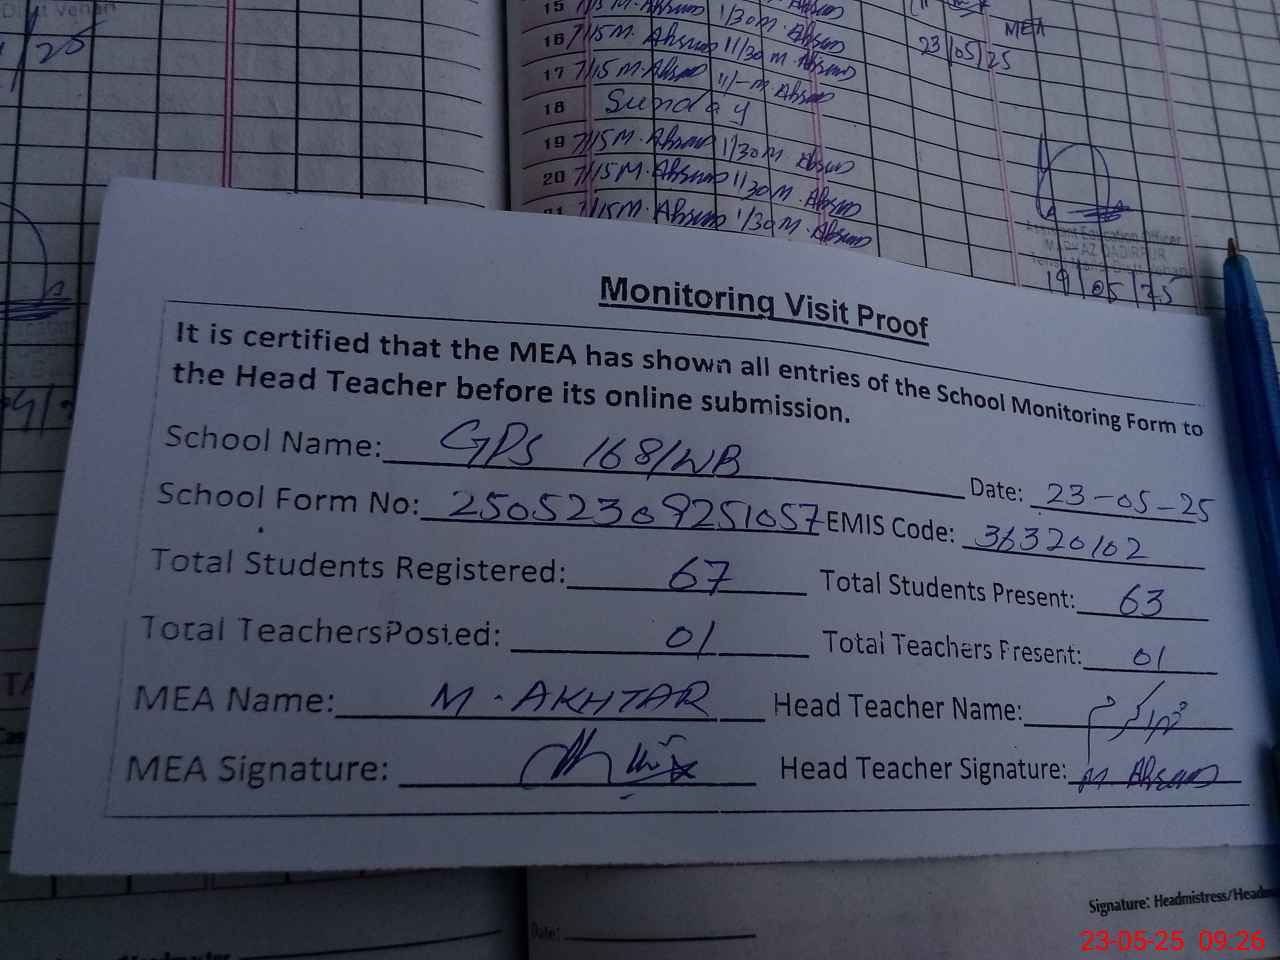 15 7/15 M. Ahsan 1/30 M. Ahsan
16 7/15 M. Ahsan 11/30 M. Ahsan
17 7/15 M. Ahsan 11/- M. Ahsan
18 Sunday
19 7/15 M. Ahsan 1/30 M. Ahsan
20 7/15 M. Ahsan 11/30 M. Ahsan
21 7/15 M. Ahsan 1/30 M. Ahsan
MEA
23/05/25
Assistant Education Officer
19/05/25
Monitoring Visit Proof
It is certified that the MEA has shown all entries of the School Monitoring Form to
the Head Teacher before its online submission.
School Name: GPS 168/WB Date: 23-05-25
School Form No: 250523089251057 EMIS Code: 36320102
Total Students Registered: 67 Total Students Present: 63
Total Teachers Posted: 01 Total Teachers Present: 01
MEA Name: M. AKHTAR Head Teacher Name:
MEA Signature: Head Teacher Signature: M Ahsan
Signature: Headmistress/
Date:
23-05-25 09:26